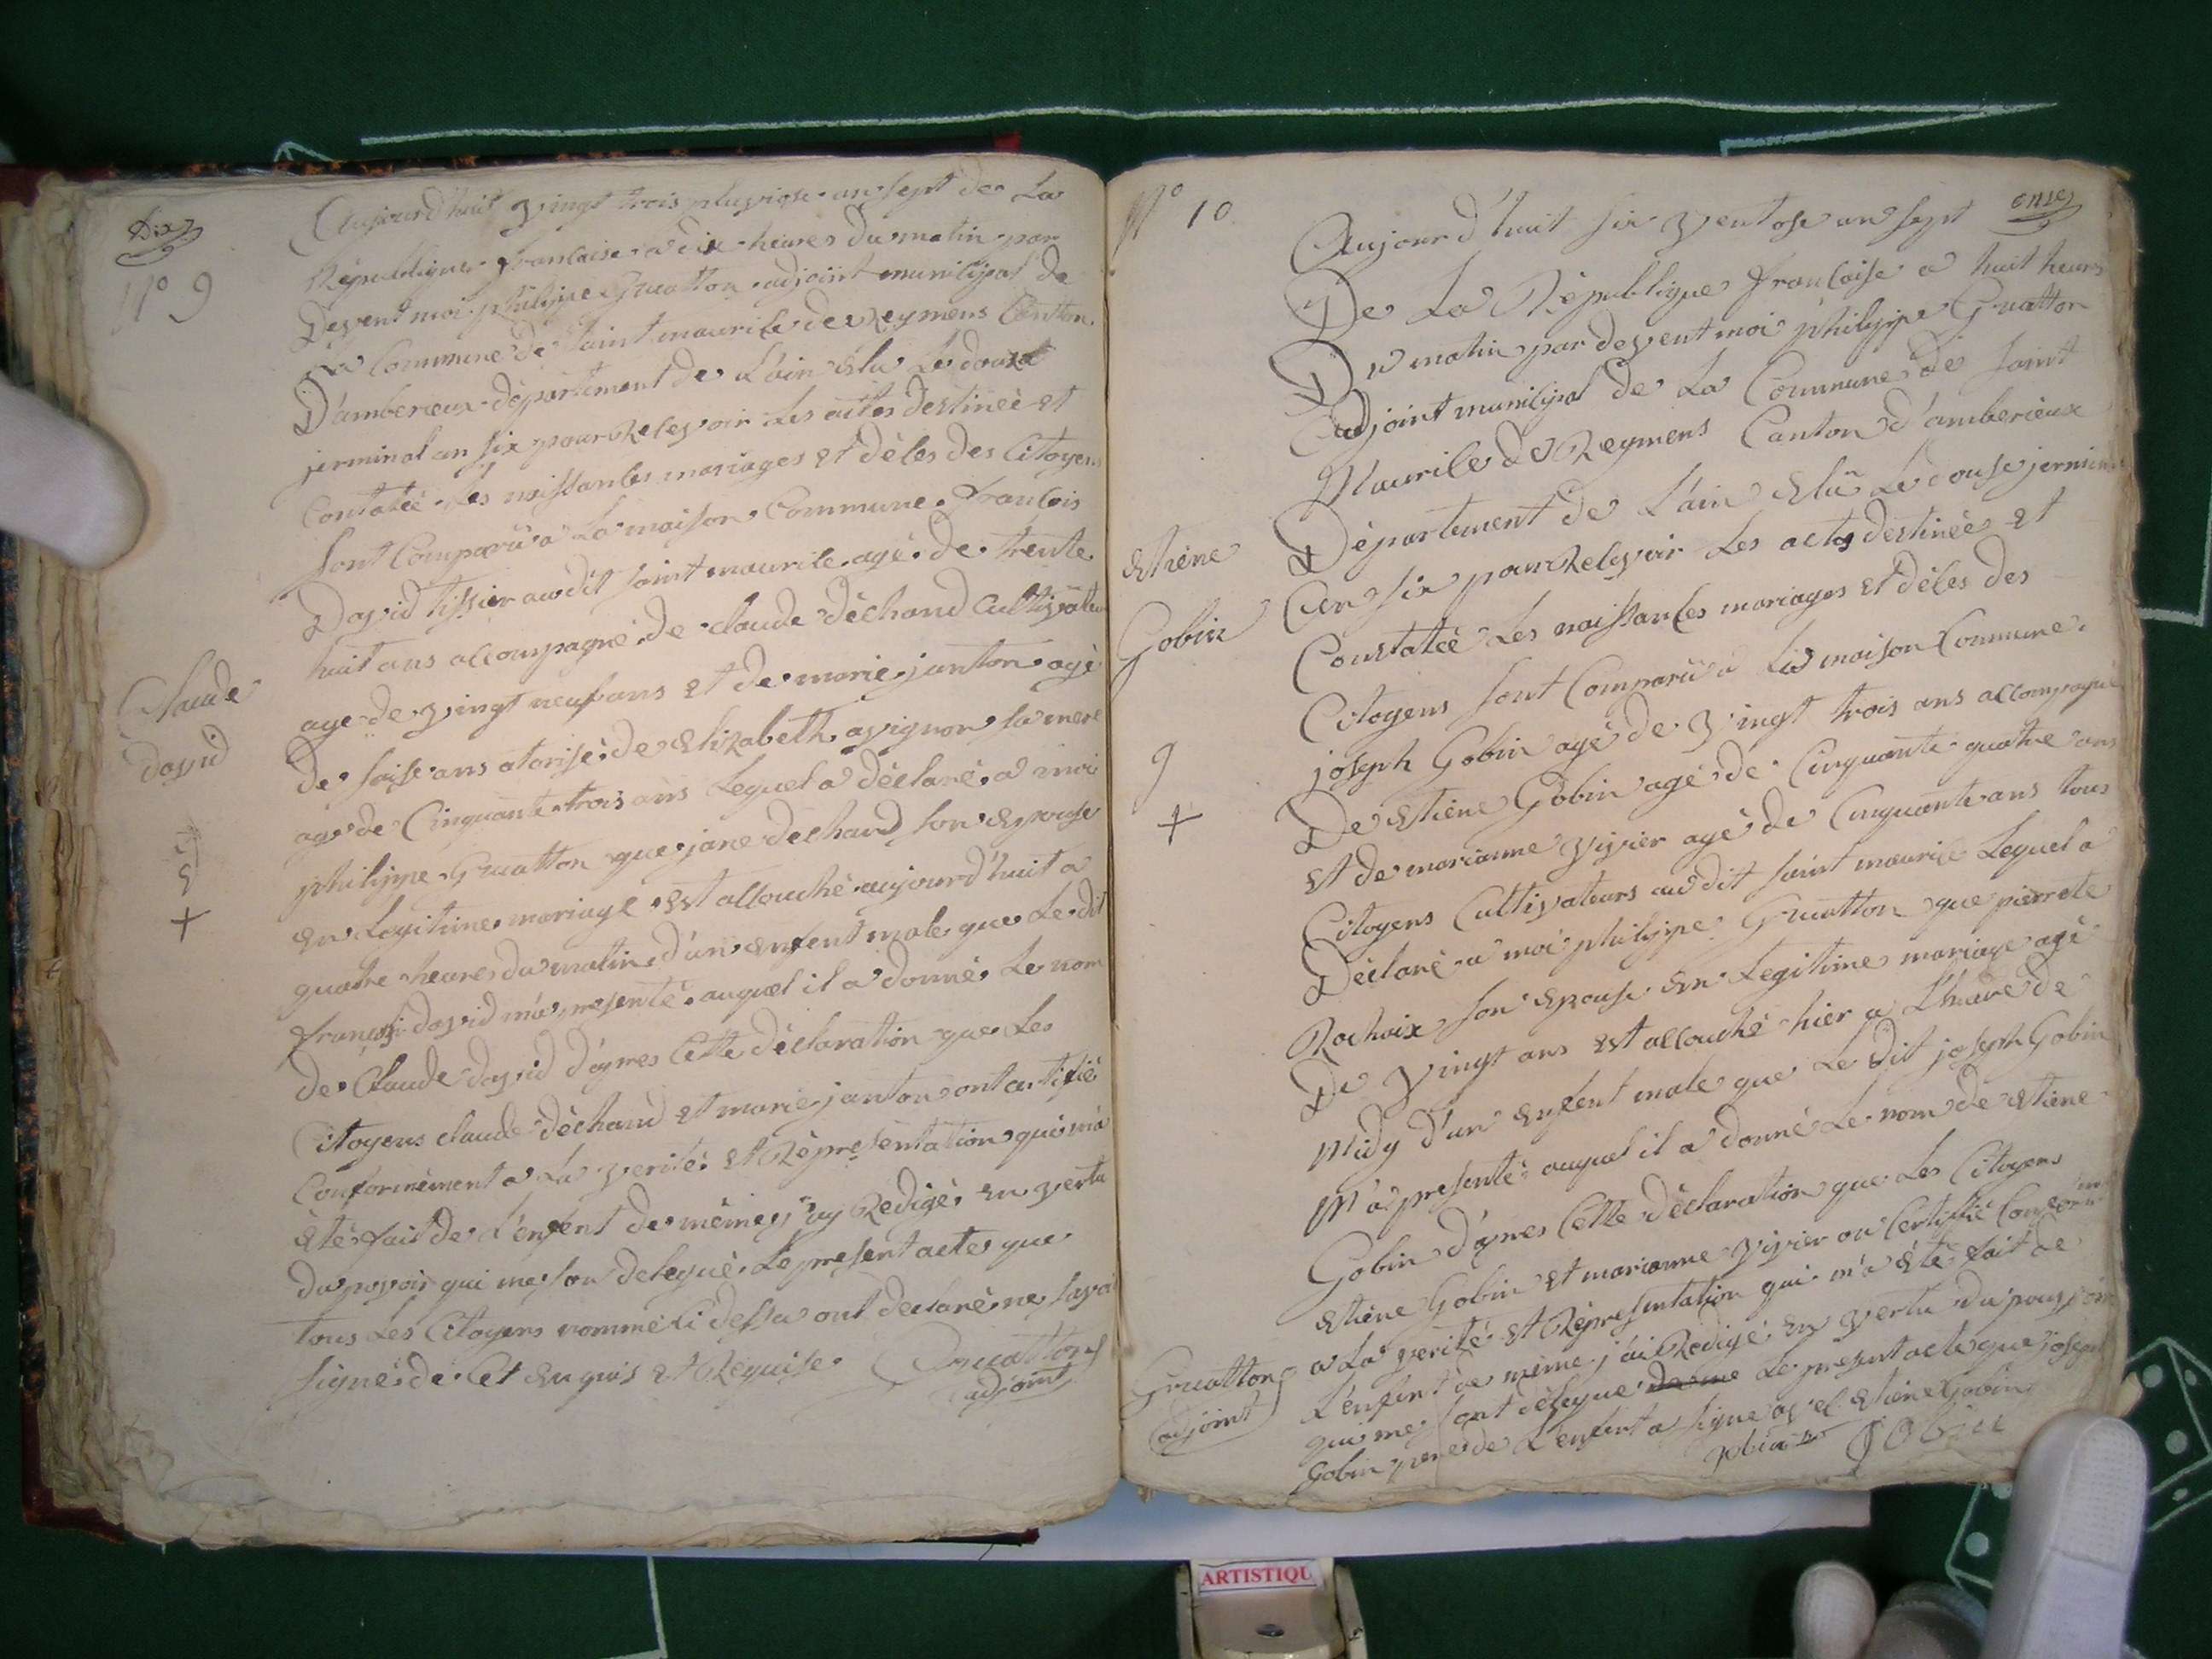 Dix
N° 9
Claude
david
9
+
Aujourd'huit vingt trois pluviose an sept de La
République francaise a dix heures du matin par
Devent moi philippe Gruatton adjoint municipal de
La Commune de saint maurice de Reymens Canton
D'amberieux département de L'ain élu Le douze
jerminal an six pour Recevoir Les actes destineé et
Contateé Les naissances mariages et déces des Citoyens
sont Comparü a La maison Commune francois
David tissier audit saint maurice agé de trente
huit ans accompagné de claude déchand Cultivateur
age de vingt neuf ans et de marie janton agé
de saise ans atorisé de Elizabeth avignon sa mere
age de Cinquante trois ans Lequel a déclaré a moi
philippe Gruatton que jane dechand son Epouse
En Legitime mariage est accouché aujourd'huit a
quatre heures du matin d'un Enfent male que Le dit
françois david m'a presenté auquel il a donné Le nom
de Claude david d'apres Cette déclaration que Les
Citoyens claude déchand et marie janton ont certifié
Conformément a La verité et Représentation qui m'a
été fait de L'enfent de même j'ay Redigé En vertu
du povoir qui me son delegué Le present actes que
tous Les Citoyens nommé Ci dessu ont déclaré ne savoi
signé de Ce Enquis et Requise Gruatton
adjoint
N° 10
onse
Estiene
Gobin
9
+
Aujourd'huit six ventose an sept
De La République francaise a huit heurs
Du matin par devent moi philippe Gruatton
adjoint municipal de La Commune de saint
Maurice de Reymens Canton d'amberieux
Département de L'ain élü Le douse jermin
an six pour Recevoir Les actes destineé et
Constateé Les naissances mariages et déces des
Citoyens sont Comparü a La maison Commune
joseph Gobin agé de vingt trois ans accompagné
De Estiene Gobin agé de Cinquante quatre ans
Et de marianne vivier agé de Cinquante ans tous
Citoyens Cultivateurs au dit saint maurice Lequel a
Déclaré a moi philippe Gruatton que pierrete
Rochaix son Epouse En Legitime mariage agé
De vingt ans est accouché hier a L'heure de
midy d'un Enfent male que Le dit joseph Gobin
M'a presenté auquel il a donné Le nom de Etiene
Gobin d'apres Cette déclaration que Les Citoyens
Etiene Gobin et marianne vivier on Certiffié Conform
a La verité et Représentation qui m'a été fait de
L'enfent de même j'ai Redigé En vertu du pouvoir
qui me sont délegué Le present acte que joseph
Gobin pere de L'enfent a signe avec Etiene Gobin
Gobin
Gruatton
adjoint
ARTISTIQU